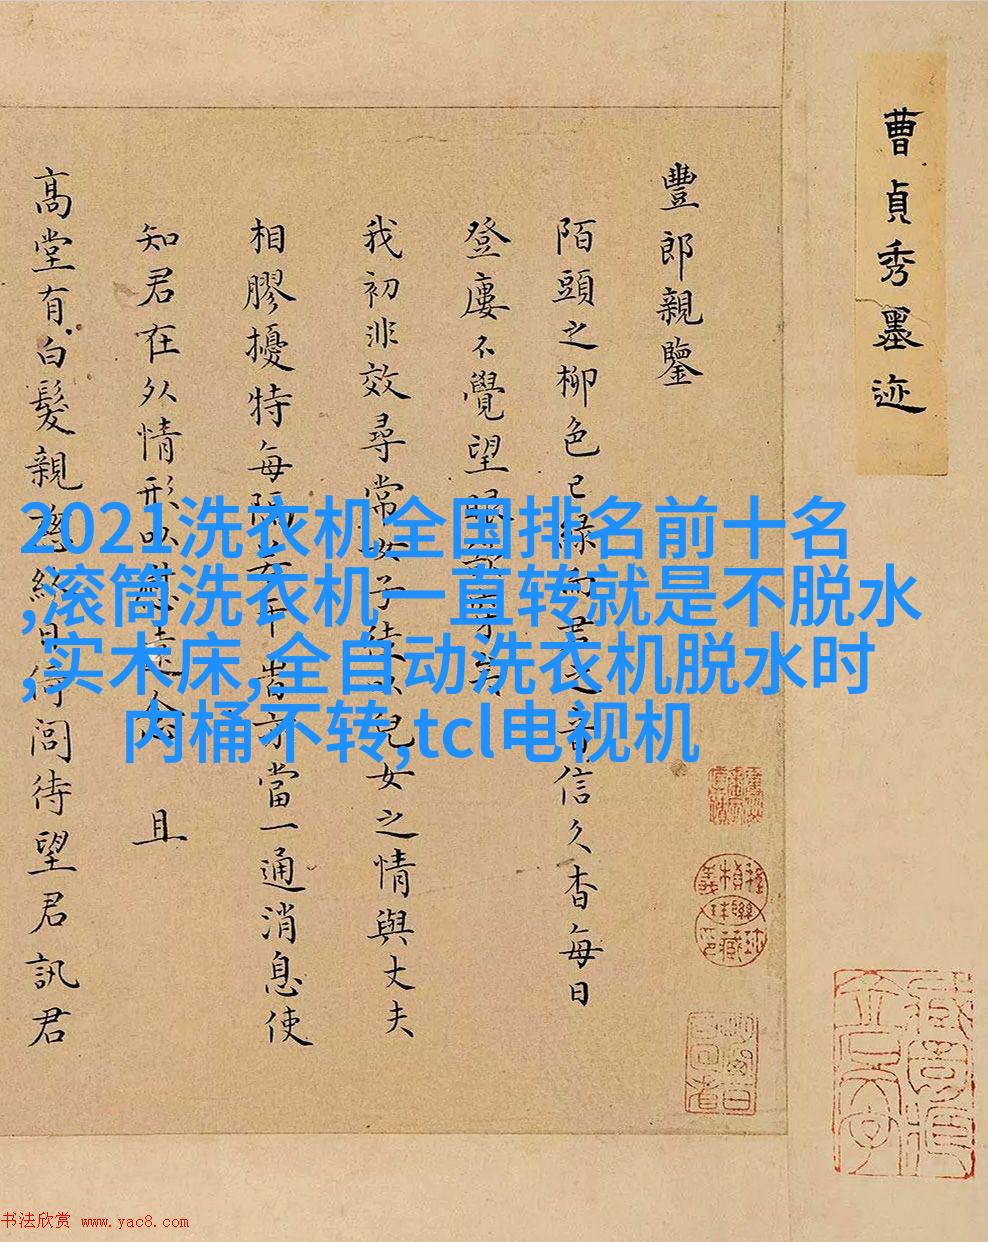 曹貞秀墨迹
豐郎親鑒
陌頭之柳色已綠而君之音信久杳每日
登廔不覺望眼
我初非效尋常女子徒以兒女之情與丈夫
相膠擾特每隔若干 當一通消息使
知君在外情形以慰遠念 且
高堂有白髮親 終日倚閭待望君訊君
2021洗衣机全国排名前十名
,滚筒洗衣机一直转就是不脱水
,实木床,全自动洗衣机脱水时
内桶不转,tcl电视机
书法欣赏 www.yac8.com